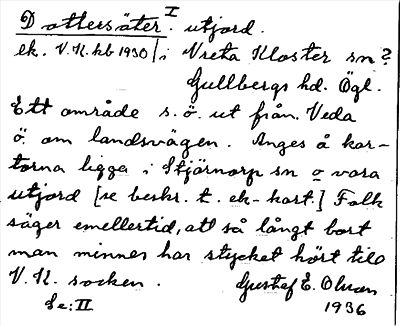 Dottersäter.I utjord.
ek. V.K.kb 1930/i Vreta Kloster sn?
Gullbergs hd. Ögl.
Ett område s.ö. ut från Veda
ö. om landsvägen. Anges å kar-
torna ligga i Stjärnorp sn o vara
utjord [se beskr. t. ek-kart.] Folk
säger emellertid, att så långt bort
man minnes har stycket hört till
V.K. socken. Gustaf E. Olsson
Se: II 1936